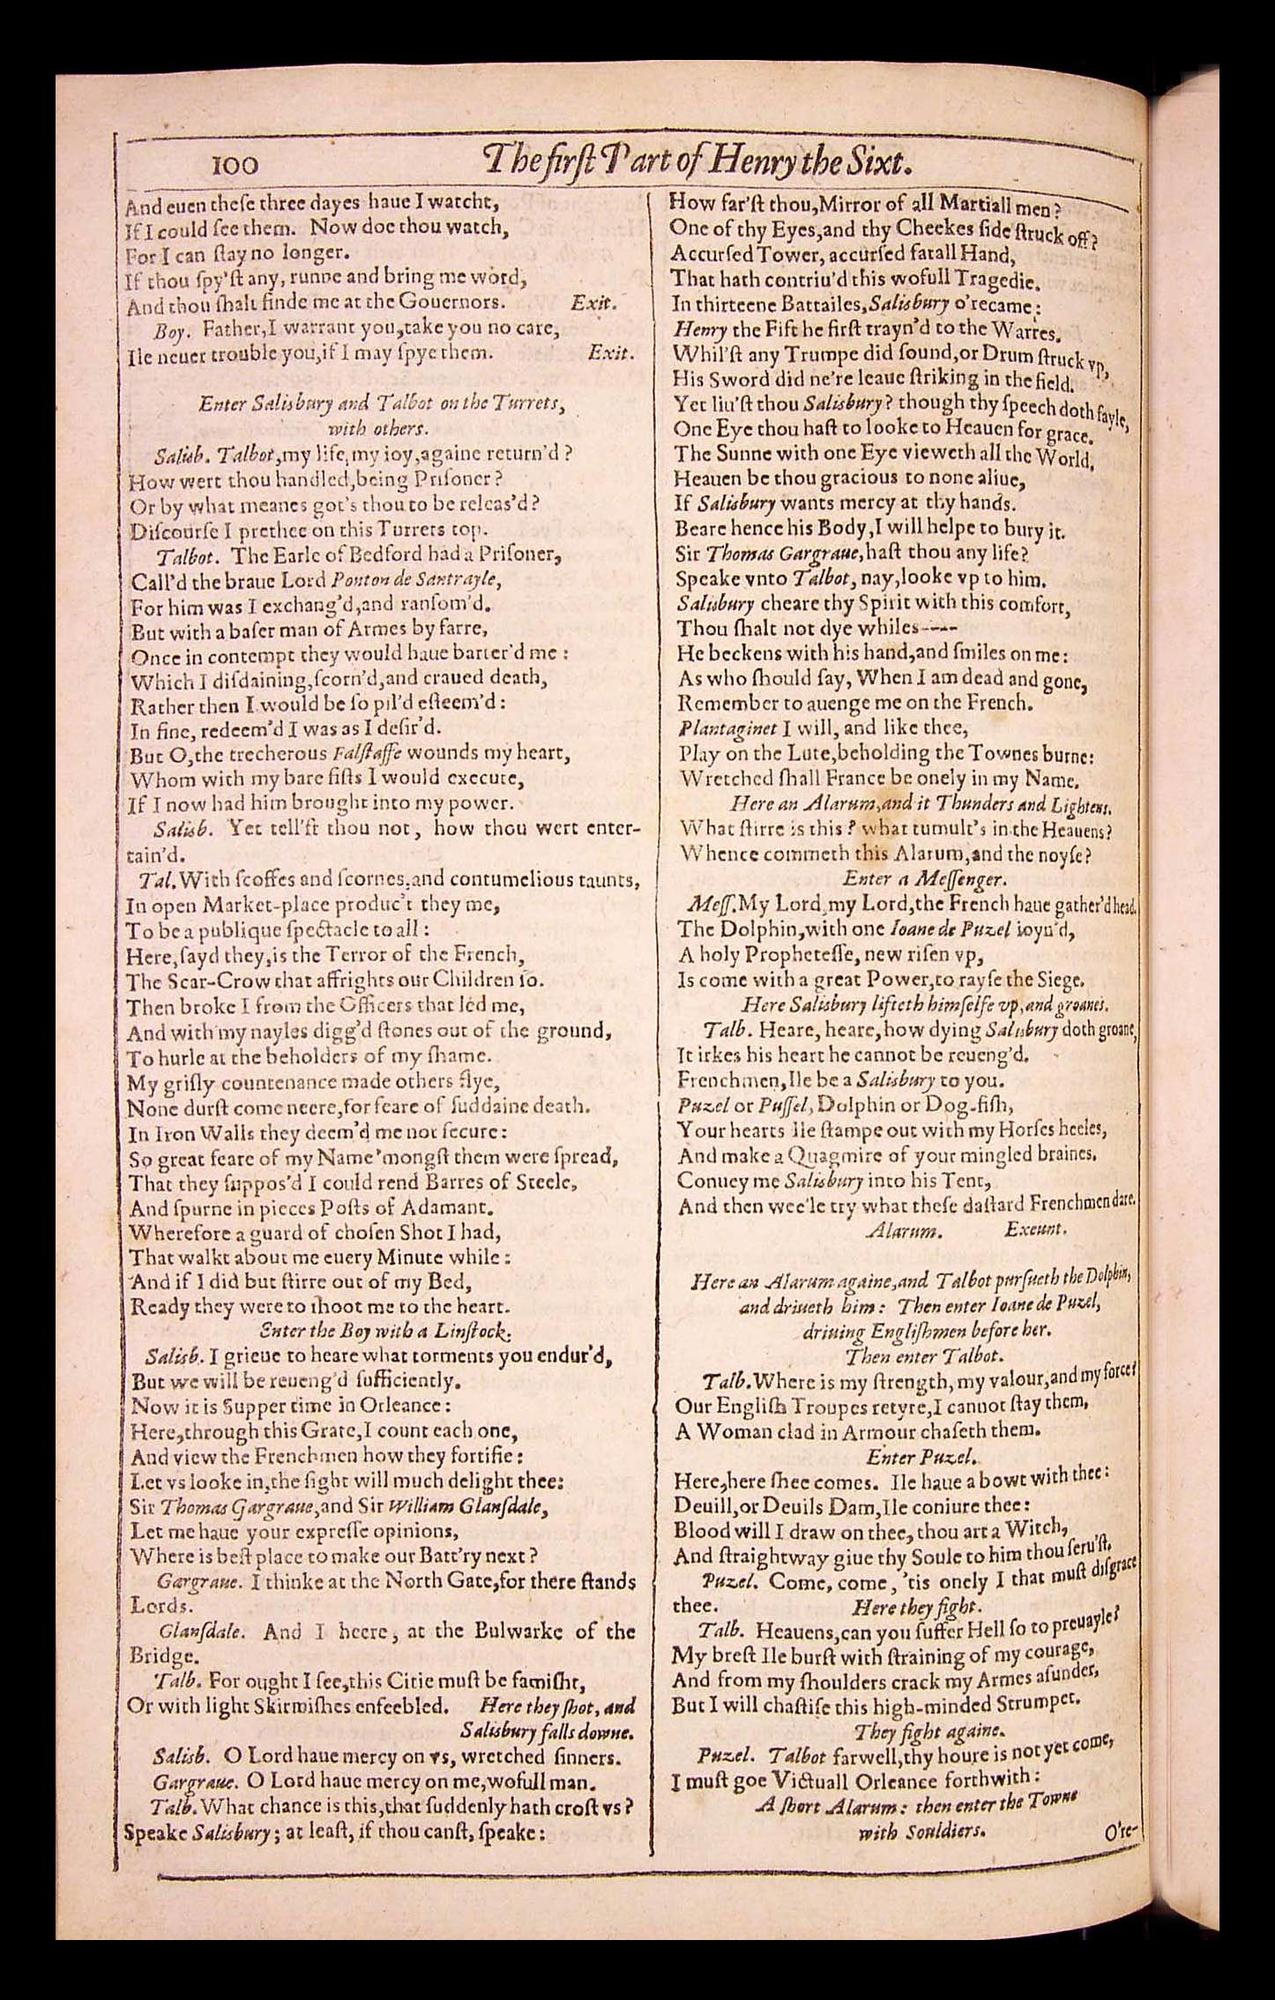 100
The firſt Part of Henry the Sixt.
And euen theſe three dayes haue I watcht,
If I could ſee them. Now doe thou watch,
For I can ſtay no longer.
If thou ſpy'ſt any, runne and bring me word,
And thou ſhalt finde me at the Gouernors. Exit.
Boy. Father, I warrant you, take you no care,
Ile neuer trouble you, if I may ſpye them. Exit.
Enter Salisbury and Talbot on the Turrets,
with others.
Salisb. Talbot, my life, my ioy, againe return'd?
How wert thou handled, being Priſoner?
Or by what meanes got's thou to be releas'd?
Diſcourſe I prethee on this Turrets top.
Talbot. The Earle of Bedford had a Priſoner,
Call'd the braue Lord Ponton de Santrayle,
For him was I exchang'd, and ranſom'd.
But with a baſer man of Armes by farre,
Once in contempt they would haue barter'd me:
Which I diſdaining, ſcorn'd, and craued death,
Rather then I would be ſo pil'd eſteem'd:
In fine, redeem'd I was as I deſir'd.
But O, the trecherous Falſtaffe wounds my heart,
Whom with my bare fiſts I would execute,
If I now had him brought into my power.
Salisb. Yet tell'ſt thou not, how thou wert enter-
tain'd.
Tal. With ſcoffes and ſcornes, and contumelious taunts,
In open Market-place produc't they me,
To be a publique ſpectacle to all:
Here, ſayd they, is the Terror of the French,
The Scar-Crow that affrights our Children ſo.
Then broke I from the Officers that led me,
And with my nayles digg'd ſtones out of the ground,
To hurle at the beholders of my ſhame.
My griſly countenance made others flye,
None durſt come neere, for feare of ſuddaine death.
In Iron Walls they deem'd me not ſecure:
So great feare of my Name 'mongſt them were ſpread,
That they ſuppos'd I could rend Barres of Steele,
And ſpurne in pieces Poſts of Adamant.
Wherefore a guard of choſen Shot I had,
That walkt about me euery Minute while:
And if I did but ſtirre out of my Bed,
Ready they were to ſhoot me to the heart.
Enter the Boy with a Linſtock.
Salisb. I grieue to heare what torments you endur'd,
But we will be reueng'd ſufficiently.
Now it is Supper time in Orleance:
Here, through this Grate, I count each one,
And view the Frenchmen how they fortifie:
Let vs looke in, the ſight will much delight thee:
Sir Thomas Gargraue, and Sir William Glanſdale,
Let me haue your expreſſe opinions,
Where is beſt place to make our Batt'ry next?
Gargraue. I thinke at the North Gate, for there ſtands
Lords.
Glanſdale. And I heere, at the Bulwarke of the
Bridge.
Talb. For ought I ſee, this Citie muſt be famiſht,
Or with light Skirmiſhes enfeebled. Here they ſhot, and
Salisbury falls downe.
Salisb. O Lord haue mercy on vs, wretched ſinners.
Gargraue. O Lord haue mercy on me, wofull man.
Talb. What chance is this, that ſuddenly hath croſt vs?
Speake Salisbury; at leaſt, if thou canſt, ſpeake:
How far'ſt thou, Mirror of all Martiall men?
One of thy Eyes, and thy Cheekes ſide ſtruck off?
Accurſed Tower, accurſed fatall Hand,
That hath contriu'd this wofull Tragedie.
In thirteene Battailes, Salisbury o'recame:
Henry the Fift he firſt trayn'd to the Warres.
Whil'ſt any Trumpe did ſound, or Drum ſtruck vp,
His Sword did ne're leaue ſtriking in the field.
Yet liu'ſt thou Salisbury? though thy ſpeech doth fayle,
One Eye thou haſt to looke to Heauen for grace.
The Sunne with one Eye vieweth all the World.
Heauen be thou gracious to none aliue,
If Salisbury wants mercy at thy hands.
Beare hence his Body, I will helpe to bury it.
Sir Thomas Gargraue, haſt thou any life?
Speake vnto Talbot, nay, looke vp to him.
Salisbury cheare thy Spirit with this comfort,
Thou ſhalt not dye whiles----
He beckens with his hand, and ſmiles on me:
As who ſhould ſay, When I am dead and gone,
Remember to auenge me on the French.
Plantaginet I will, and like thee,
Play on the Lute, beholding the Townes burne:
Wretched ſhall France be onely in my Name.
Here an Alarum, and it Thunders and Lightens.
What ſtirre is this? what tumult's in the Heauens?
Whence commeth this Alarum, and the noyſe?
Enter a Meſſenger.
Meſſ. My Lord, my Lord, the French haue gather'd head.
The Dolphin, with one Ioane de Puzel ioyn'd,
A holy Propheteſſe, new riſen vp,
Is come with a great Power, to rayſe the Siege.
Here Salisbury lifteth himſelfe vp, and groanes.
Talb. Heare, heare, how dying Salisbury doth groane,
It irkes his heart he cannot be reueng'd.
Frenchmen, Ile be a Salisbury to you.
Puzel or Puſſel, Dolphin or Dog-fiſh,
Your hearts Ile ſtampe out with my Horſes heeles,
And make a Quagmire of your mingled braines.
Conuey me Salisbury into his Tent,
And then wee'le try what theſe daſtard Frenchmen dare.
Alarum. Exeunt.
Here an Alarum againe, and Talbot purſueth the Dolphin,
and driueth him: Then enter Ioane de Puzel,
driuing Engliſhmen before her.
Then enter Talbot.
Talb. Where is my ſtrength, my valour, and my force?
Our Engliſh Troupes retyre, I cannot ſtay them,
A Woman clad in Armour chaſeth them.
Enter Puzel.
Here, here ſhee comes. Ile haue a bowt with thee:
Deuill, or Deuils Dam, Ile coniure thee:
Blood will I draw on thee, thou art a Witch,
And ſtraightway giue thy Soule to him thou ſeru'ſt.
Puzel. Come, come, 'tis onely I that muſt diſgrace
thee. Here they fight.
Talb. Heauens, can you ſuffer Hell ſo to preuayle?
My breſt Ile burſt with ſtraining of my courage,
And from my ſhoulders crack my Armes aſunder,
But I will chaſtiſe this high-minded Strumpet.
They fight againe.
Puzel. Talbot farwell, thy houre is not yet come,
I muſt goe Victuall Orleance forthwith:
A ſhort Alarum: then enter the Towne
with Souldiers.
O're-